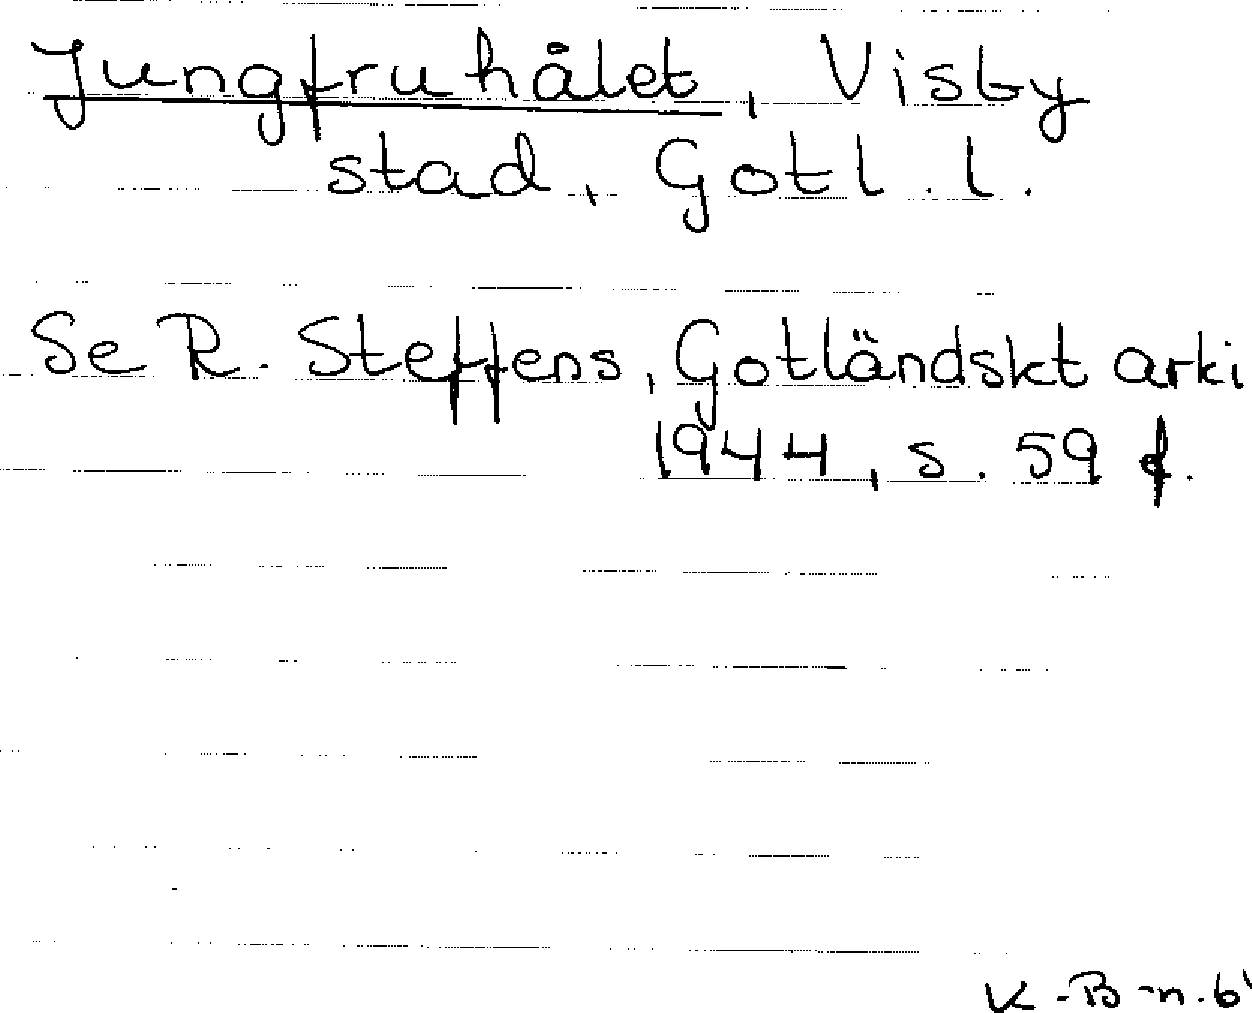 Jungfruhålet, Visby
stad, Gotl. l.
Se R. Steffens, Gotländskt arki
1944, s. 59 f.
K.-B-n. 61